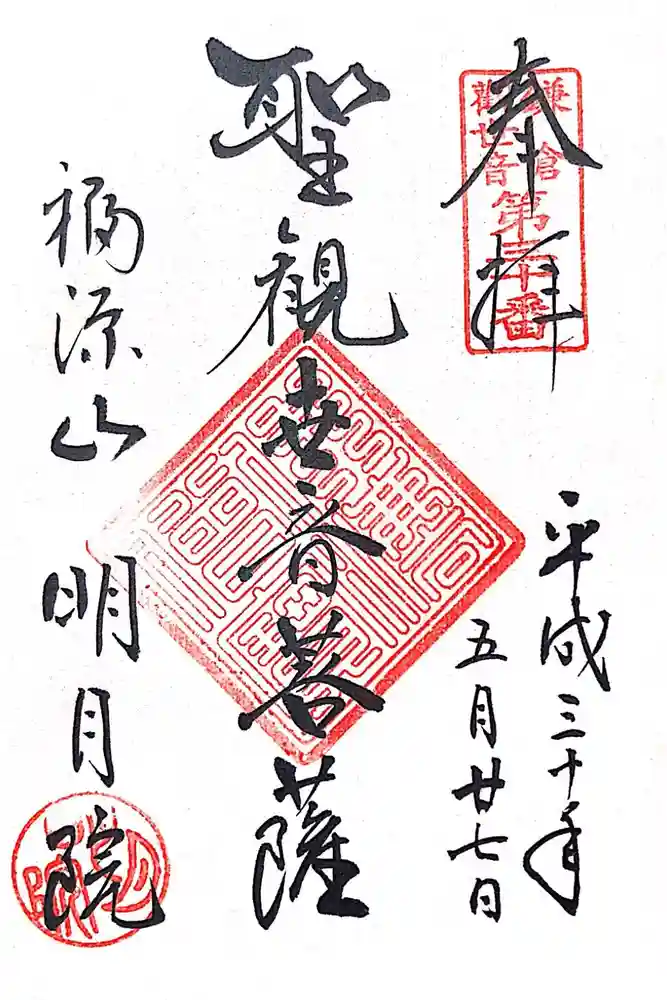 奉拝
鎌倉
観世音
第三十番
平成三十年
五月廿七日
聖観世音菩薩
福源山
明月院